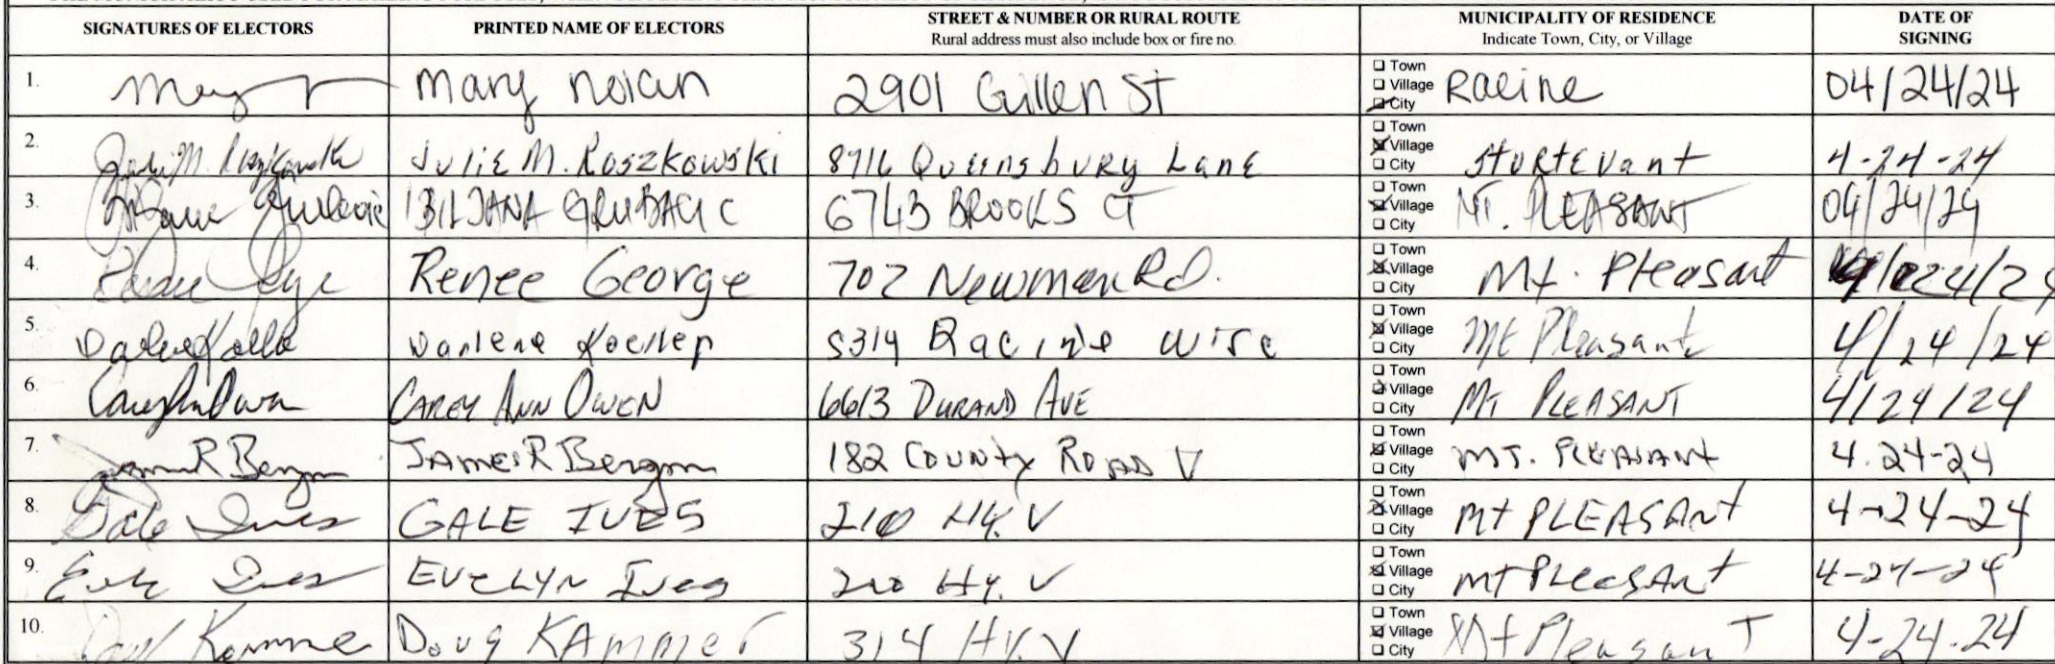 SIGNATURES OF ELECTORS PRINTED NAME OF ELECTORS STREET & NUMBER OR RURAL ROUTE Rural address must also include box or fire no. MUNICIPALITY OF RESIDENCE Indicate Town, City, or Village DATE OF SIGNING
1. Mary Nolan 2901 Gillen St Town Village City Racine 04/24/24
2. Julie M. Roszkowski 8716 Queensbury Lane Town Village City Sturtevant 4-24-24
3. BILJANA GRUBACIC 6743 BROOKS CT Town Village City MT. PLEASANT 04/24/24
4. Renee George 702 Newman Rd. Town Village City Mt. Pleasant
5. Darlene 5314 Racine Wisc Town Village City Mt Pleasant 4/24/24
6. CAREY ANN OWEN 6613 DURAND AVE Town Village City MT PLEASANT 4/24/24
7. James R Bergm JAMES R Bergm 182 COUNTY ROAD V Town Village City MT. PLEASANT 4.24-24
8. Gale Ives GALE IVES 210 HY. V Town Village City Mt PLEASANT 4-24-24
9. EVELYN Ives 210 Hy. V Town Village City Mt PLeasAnt 4-24-24
10. Doug KAmmer 314 HY. V Town Village City Mt Pleasant 4-24-24